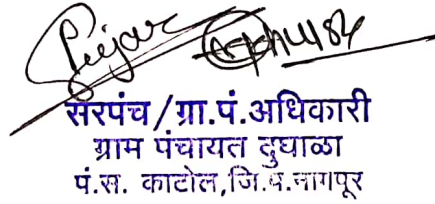 सरपंच/ग्रा.पं.अधिकारी
ग्राम पंचायत दुधाळा
पं.स. काटोल,जि.प.नागपूर